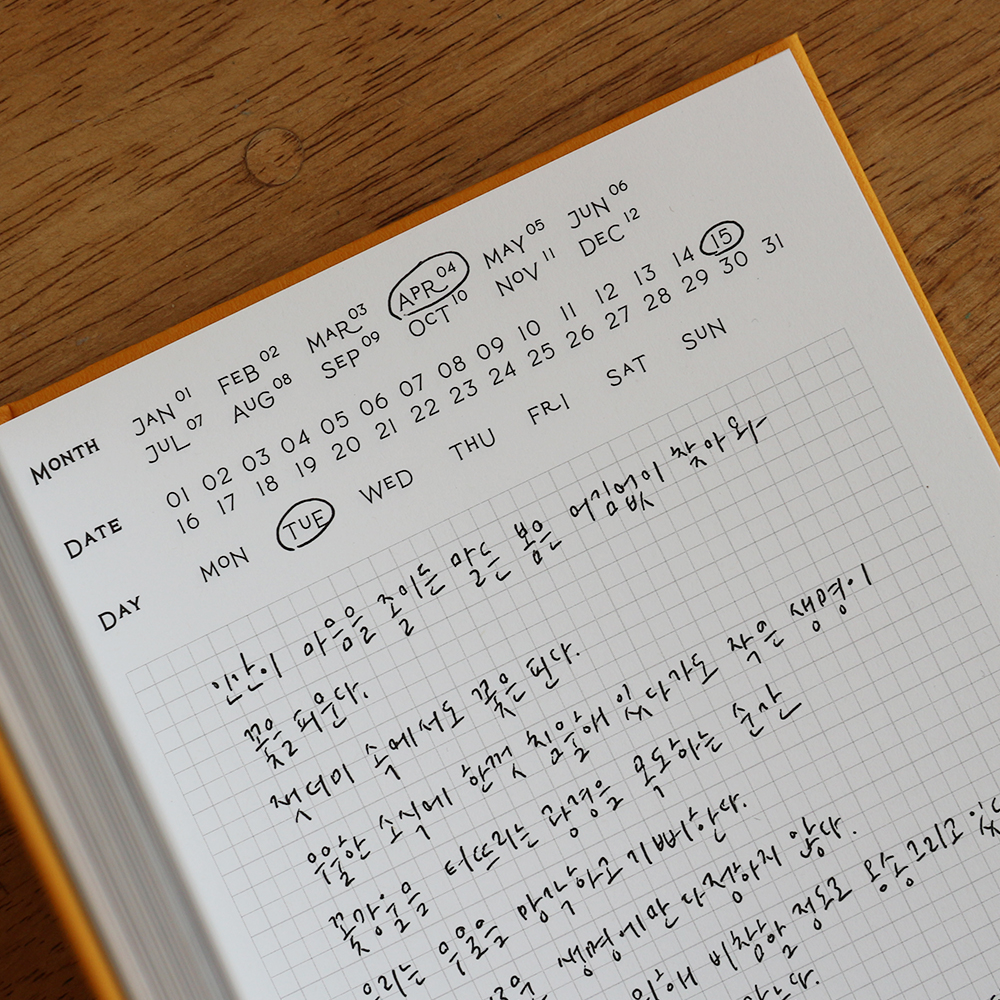 MONTH JAN 01 FEB 02 MAR 03 APR 04 MAY 05 JUN 06
JUL 07 AUG 08 SEP 09 OCT 10 NOV 11 DEC 12
DATE 01 02 03 04 05 06 07 08 09 10 11 12 13 14 15
16 17 18 19 20 21 22 23 24 25 26 27 28 29 30 31
DAY MON TUE WED THU FRI SAT SUN
인간이 마음을 졸이든 말든 봄은 어김없이 찾아와
꽃을 피운다.
잿더미 속에서도 꽃은 핀다.
우울한 소식에 한껏 침울해 있다가도 작은 생명이
꽃망울을 터뜨리는 광경을 목도하는 순간
우리는 우울을 망각하고 기뻐한다.
생명에만 다정하지 않다.
위해 비참할 정도로 옹송그리고 있